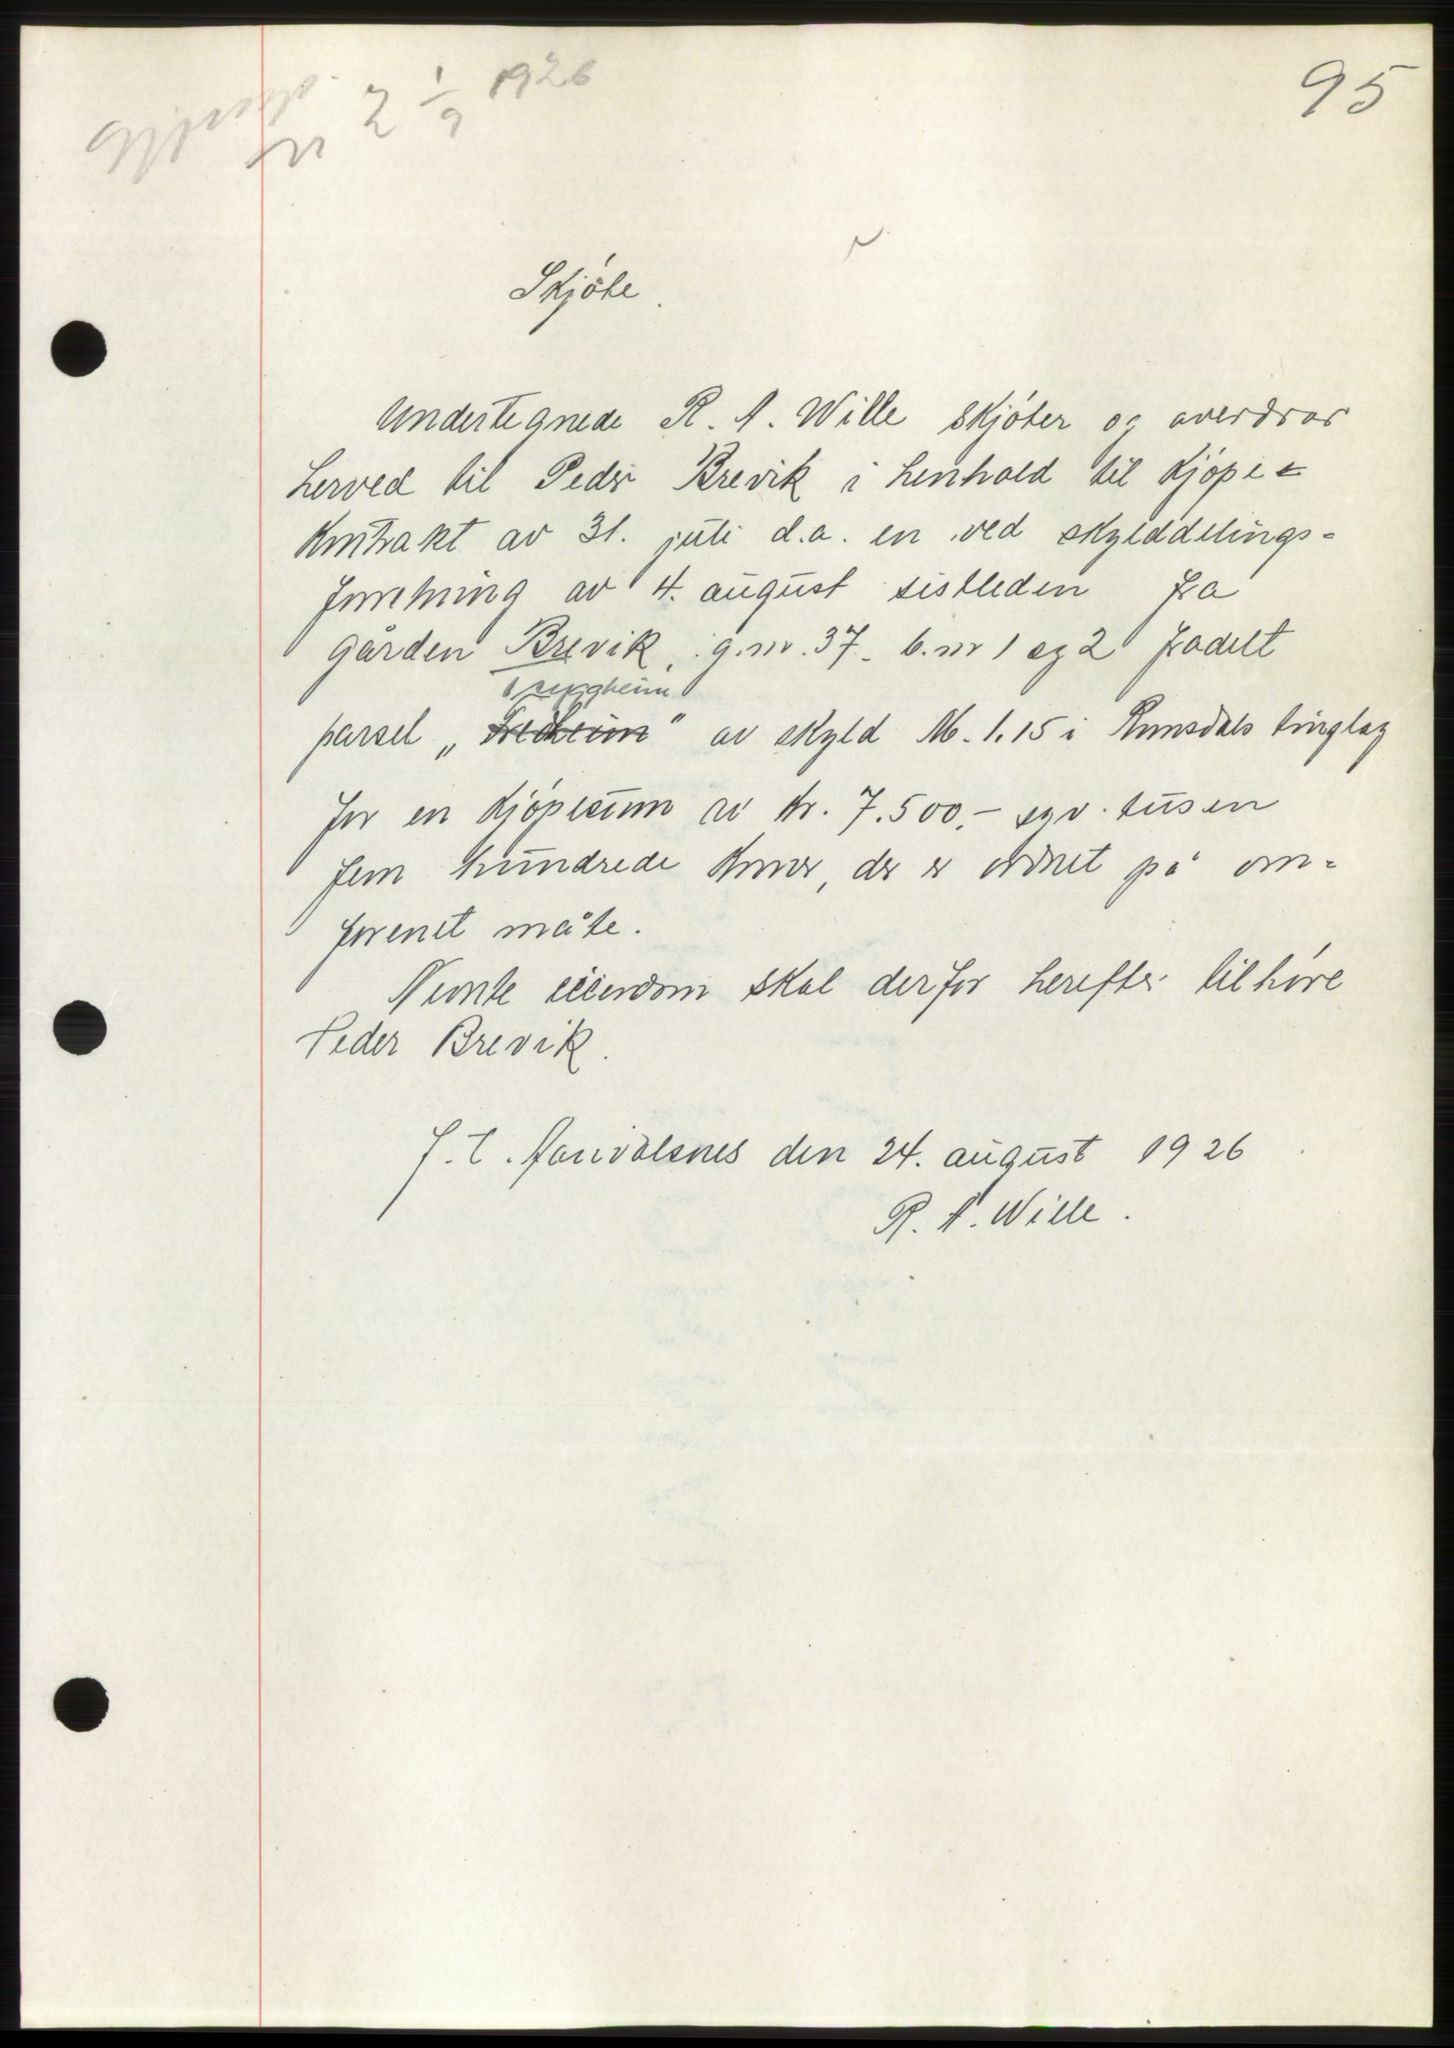 95
nr 2 1/9 1926
Skjöte.
Undertegnede R. A. Wille skjöter og overdrar
herved til Peder Brevik i henhold til kjöpe-
kontrakt av 31. juli d.a. en ved skylddelings-
forretning av 4. august sistleden fra
gården Brevik, g.nr. 37. b.nr 1 og 2 fradelt
parsel „ " av skyld M. 1.15 i Romsdals tinglag
for en kjöpesum av kr. 7.500.- syv tusen
fem hundrede kroner, der er ordnet på om-
forenet måte.
Nevnte eiendom skal derfor herefter tilhöre
Peder Brevik.
den 24. august 1926
R. A. Wille.